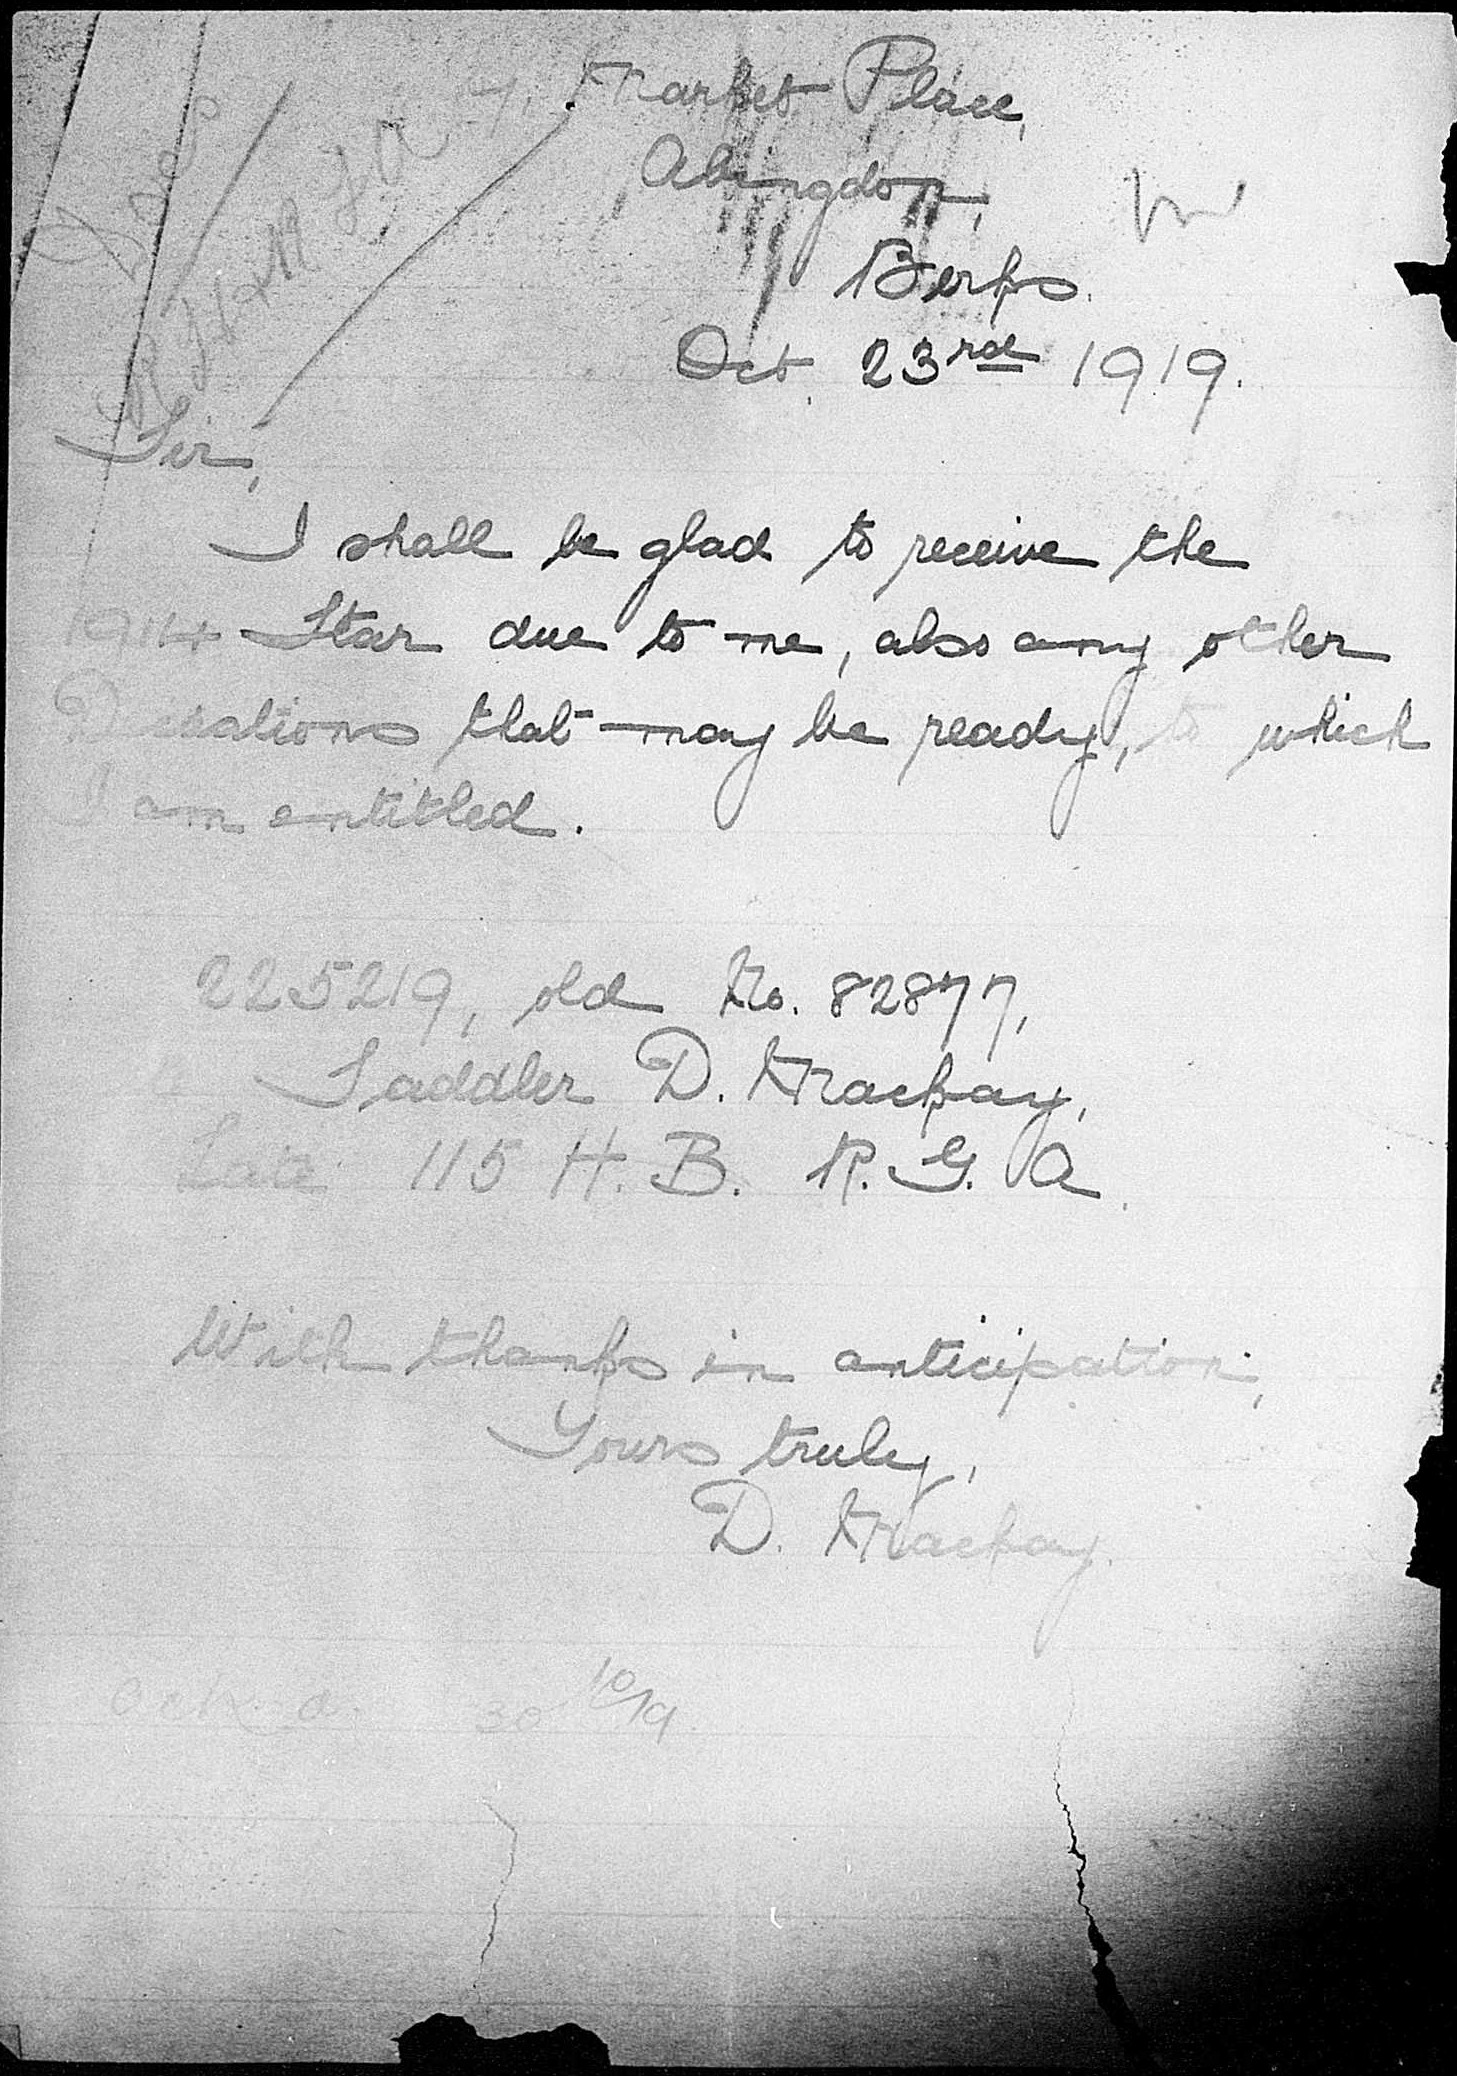 7, Market Place,
Abingdon,
Berks.
Oct. 23rd 1919.
Sir,
I shall be glad to receive the
1914 Star due to me, also any other
Decorations that may be ready, to which
I am entitled.
225219, old No. 82877,
Saddler D. Mackay,
Late 115 H. B. R. G. A.
With thanks in anticipation,
Yours truly,
D. Mackay.
30 10/19